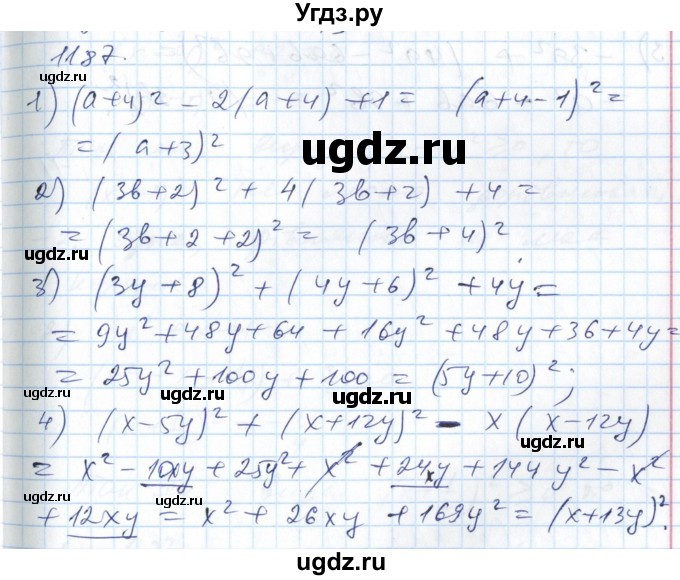 Угдз.ру
1187.
1) (a+4)² - 2(a+4) + 1 = (a+4-1)² =
= (a+3)²
ugdz.ru
2) (3b+2)² + 4(3b+2) + 4 =
= (3b+2+2)² = (3b+4)²,
ugdz.ru ugdz.ru
3) (3y+8)² + (4y+6)² + 4y =
= 9y² + 48y + 64 + 16y² + 48y + 36 + 4y =
ugdz.ru
= 25y² + 100y + 100 = (5y+10)²;
ugdz.ru
4) (x-5y)² + (x+12y)² - x(x-12y)
= x² - 10xy + 25y² + x² + 24xy + 144y² - x²
ugdz.ru ugdz.ru
+ 12xy = x² + 26xy + 169y² = (x+13y)².
ugdz.ru